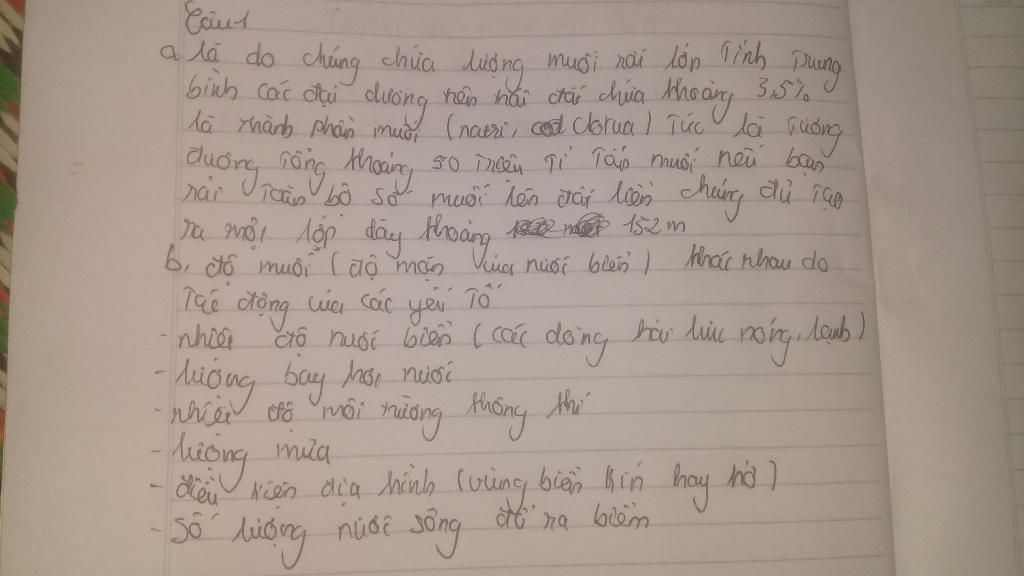 Câu 1
a là do chúng chứa lượng muối rất lớn Tính Trung
bình các đại dương trên trái đất chứa khoảng 3,5%
là thành phần muối (natri, clorua) Tức là Tương
đương Tổng khoảng 50 Triệu Tỉ Tấn muối nếu bạn
rải Toàn bộ số muối lên đất liền chúng đủ Tạo
ra một lớp dày khoảng 152 m
b, độ muối (độ mặn của nước biển) khác nhau do
Tác động của các yếu Tố
- nhiệt độ nước biển (các dòng hải lưu nóng, lạnh)
- lượng bay hơi nước
- nhiệt độ môi trường không khí
- lượng mưa
- điều kiện địa hình (vùng biển kín hay hở)
- số lượng nước sông đổ ra biển